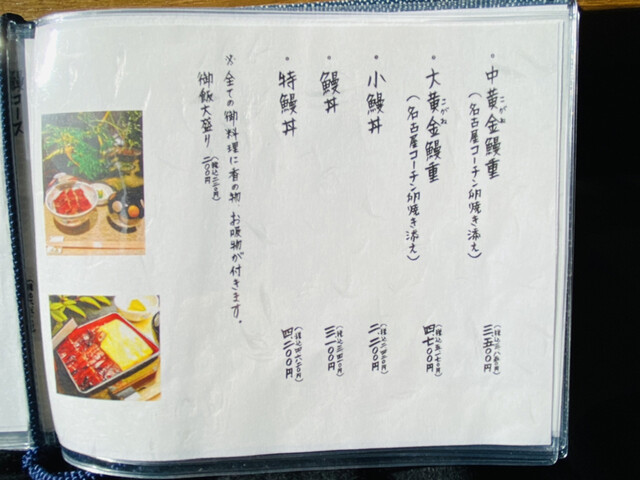 ・中黄金鰻重
こがね
(名古屋コーチン卵焼き添え)
三、五〇〇円
・大黄金鰻重
こがね
(名古屋コーチン卵焼き添え)
四、七〇〇円
(税込五、一七〇円)
・小鰻丼
二、二〇〇円
(税込二、四二〇円)
・鰻丼
三、一〇〇円
(税込三、四一〇円)
・特鰻丼
四、二〇〇円
(税込四、六二〇円)
※全ての御料理に香の物 お吸物が付きます。
御飯大盛り 二〇〇円
(税込二二〇円)
コース